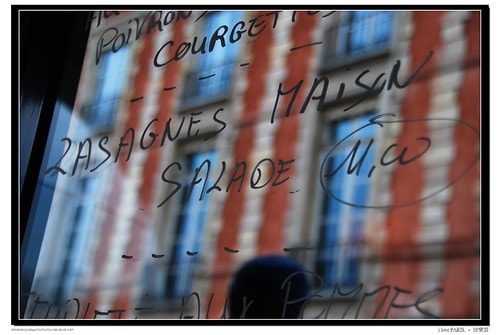 POIVRONS
COURGETTES
LASAGNES MAISON
SALADE 11,00
AUX POMMES
i love PARIS.